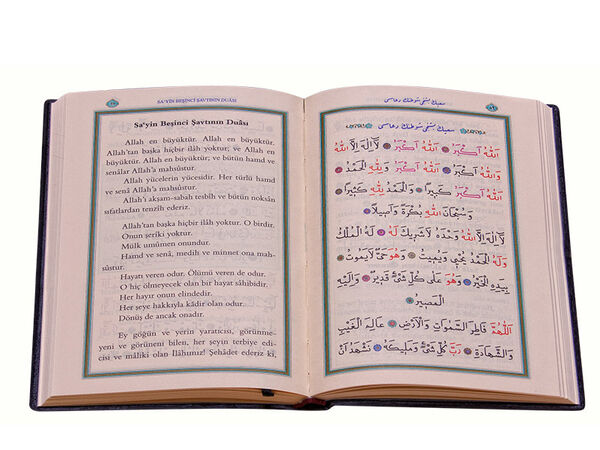 SA'YİN BEŞİNCİ ŞAVTININ DUÂSI
Sa'yin Beşinci Şavtının Duâsı
Allah en büyüktür. Allah en büyüktür.
Allah'tan başka hiçbir ilâh yoktur; ve Allah en
büyüktür. Allah en büyüktür; ve bütün hamd ve
senâlar Allah'a mahsûstur.
Allah yücelerin yücesidir. Her türlü hamd
ve senâ Allah'a mahsûstur.
Allah'ı akşam-sabah tesbih ve bütün noksan
sıfatlardan tenzîh ederiz.
Allah'tan başka hiçbir ilâh yoktur. O birdir.
Onun şerîki yoktur.
Mülk umûmen onundur.
Hamd ve senâ, medih ve minnet ona mah-
sûstur.
Hayatı veren odur. Ölümü veren de odur.
O hiç ölmeyecek olan bir hayat sâhibidir.
Her hayır onun elindedir.
Her şeye hakkıyla kâdir olan odur.
Dönüş de ancak onadır.
Ey göğün ve yerin yaratıcısı, görünme-
yeni ve görüneni bilen, her şeyin terbiye edi-
cisi ve mâliki olan İlâhımız! Şehâdet ederiz ki,
اَللّٰهُ اَكْبَرُ اَللّٰهُ اَكْبَرُ لَا اِلٰهَ اِلَّا اللّٰهُ
وَاللّٰهُ اَكْبَرُ اَللّٰهُ اَكْبَرُ وَلِلّٰهِ الْحَمْدُ
اَللّٰهُ اَكْبَرُ كَبِيرًا وَالْحَمْدُ لِلّٰهِ كَثِيرًا
وَسُبْحَانَ اللّٰهِ بُكْرَةً وَاَصِيلًا
لَا اِلٰهَ اِلَّا اللّٰهُ وَحْدَهُ لَا شَرِيكَ لَهُ لَهُ الْمُلْكُ
وَلَهُ الْحَمْدُ يُحْيِي وَيُمِيتُ وَهُوَ حَىٌّ لَا يَمُوتُ
بِيَدِهِ الْخَيْرُ وَهُوَ عَلٰى كُلِّ شَىْءٍ قَدِيرٌ وَاِلَيْهِ
الْمَصِيرُ
اَللّٰهُمَّ فَاطِرَ السَّمٰوَاتِ وَالْاَرْضِ عَالِمَ الْغَيْبِ
وَالشَّهَادَةِ رَبَّ كُلِّ شَىْءٍ وَمَلِيكَهُ نَشْهَدُ اَنْ